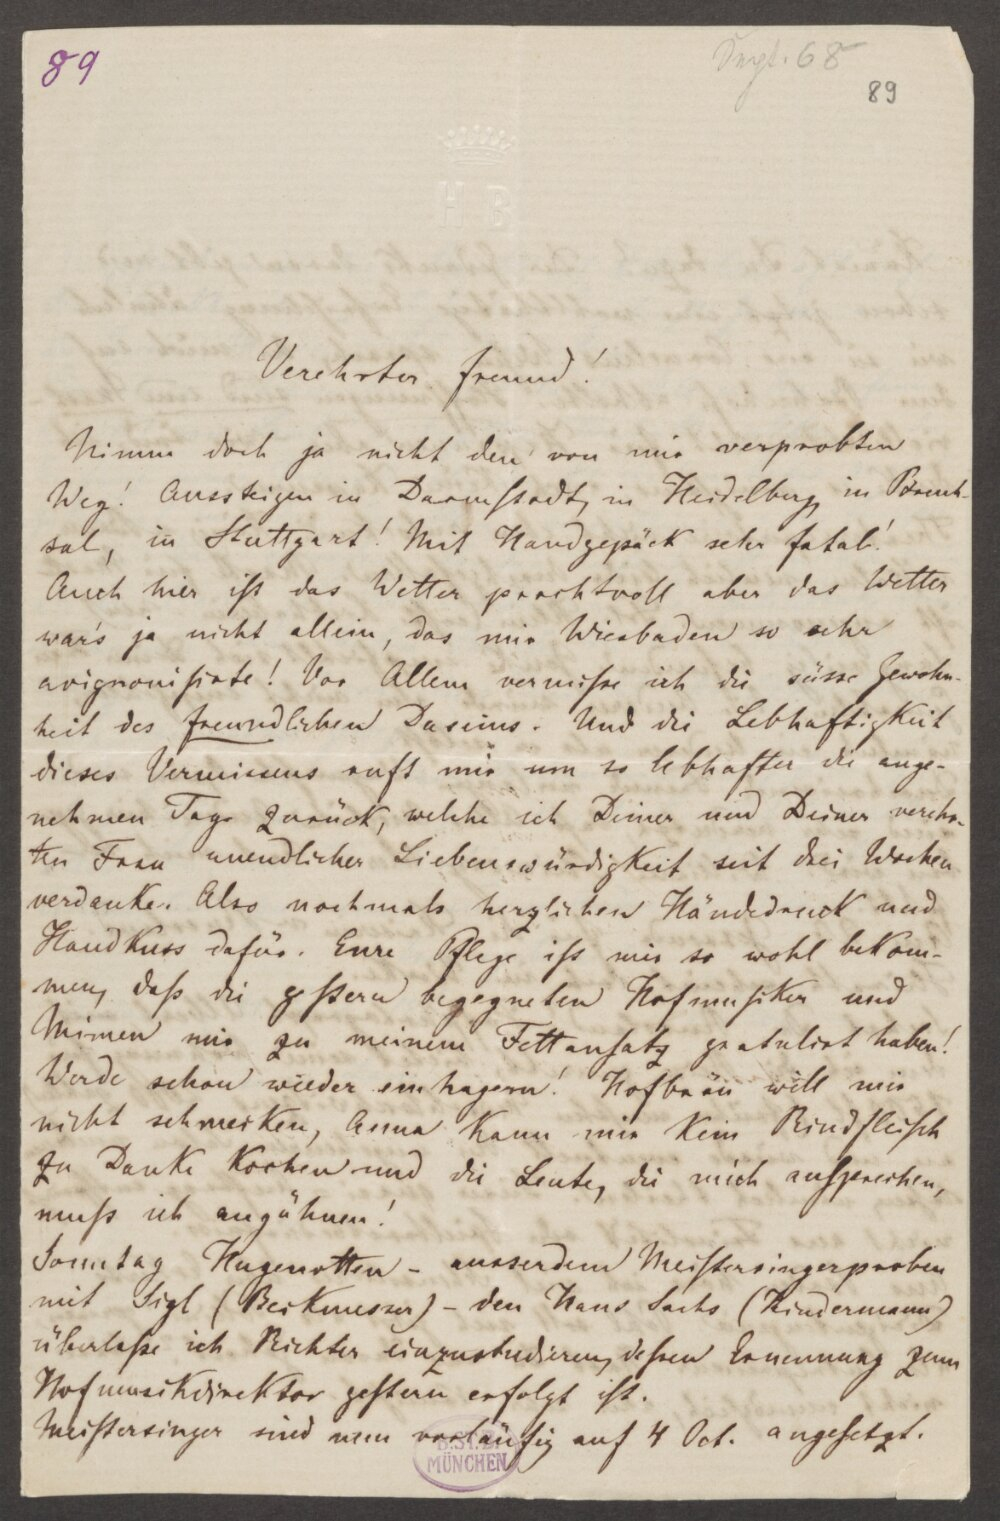 89
Sept. 68
89
H B
Verehrter Freund!
Nimm doch ja nicht den von mir verprobten
Weg! Aussteigen in Darmstadt, in Heidelberg, in Bruch-
sal, in Stuttgart! Mit Handgepäck sehr fatal!
Auch hier ist das Wetter prachtvoll aber das Wetter
war's ja nicht allein, das mir Wiesbaden so sehr
avignonisirte! Vor Allem vermisse ich die süsse Gewohn-
heit des freundlichen Daseins. Und die Lebhaftigkeit
dieses Vermissens ruft mir um so lebhafter die ange-
nehmen Tage zurück, welche ich Deiner und Deiner verehr-
ten Frau unendlicher Liebenswürdigkeit seit drei Wochen
verdanke. Also nochmals herzlichen Händedruck und
Handkuss dafür. Eure Pflege ist mir so wohl bekom-
men, daß die gestern begegneten Hofmusiker und
Mimen mir zu meinem Fettansatz gratulirt haben!
Werde schon wieder einhagern! Hofbräu will mir
nicht schmecken, Anna kann mir kein Rindfleisch
zu Danke kochen und die Leute, die mich ansprechen,
muß ich angähnen!
Sonntag Hugenotten – ausserdem Meistersingerproben
mit Sigl (Beckmesser) – den Hans Sachs (Kindermann)
überlaße ich Richter einzustudieren, deßen Ernennung zum
Hofmusikdirektor gestern erfolgt ist.
Meistersinger sind nun vorläufig auf 4 Oct. angesetzt.
B.ST.B.
MÜNCHEN